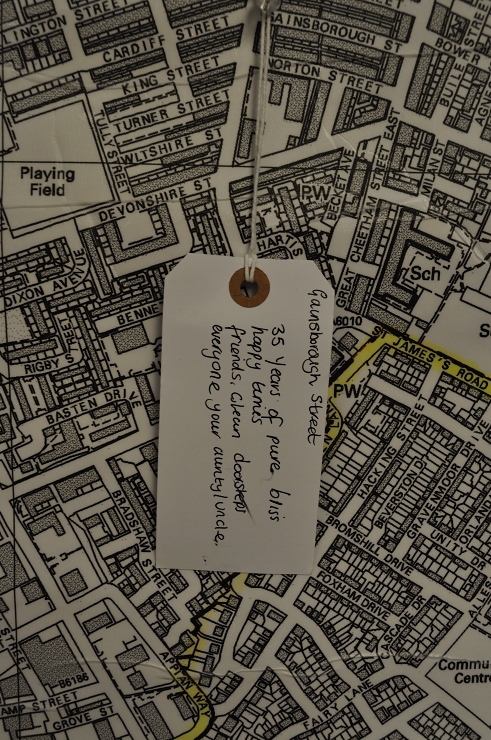 Gainsborough Street
35 years of pure bliss
happy times
friends, clean doorsteps
everyone your aunty/uncle.
INGTON STREET
CARDIFF STREET
KING STREET
TURNER STREET
WILTSHIRE ST
TULLY STREET
DEVONSHIRE ST
Playing
Field
AINSBOROUGH ST
NORTON STREET
BOWER
PW
BECKET AVE
GREAT CHEETHAM STREET EAST
MILAN ST
Sch
DIXON AVENUE
RIGBY STREET
BENNE
BASTEN DRIVE
6010
ST JAMES'S ROAD
PW
S
HACKING STREET
BEVERSTON DR
GRAVENMOOR DR
UNITY DR
BROMSHILL DRIVE
FOXHAM DRIVE
CASCADE DR
BRADSHAW STREET
APPIAN WAY
B6186
AMP STREET
GROVE ST
FAIRY LANE
Commu
Centre